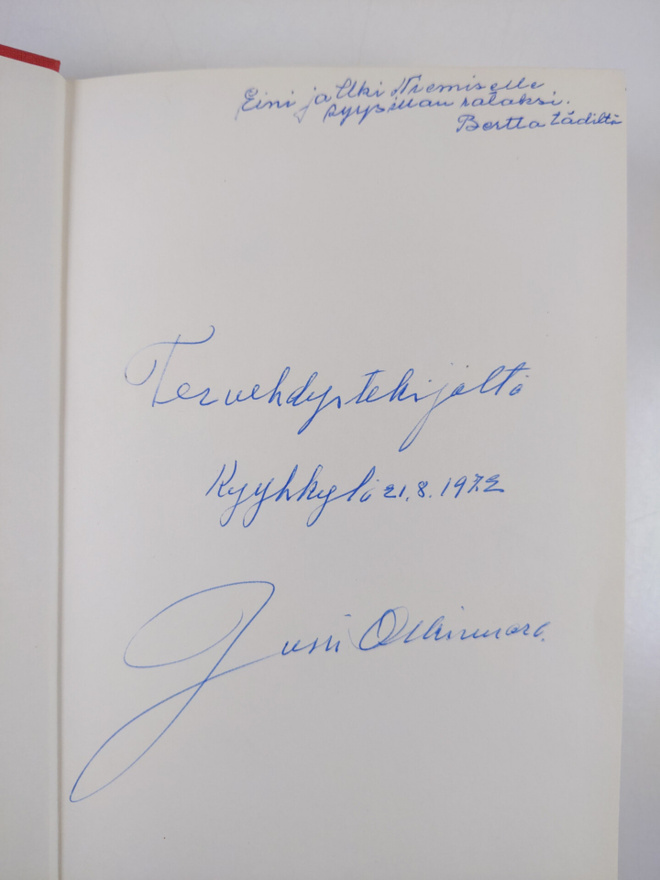 Eini ja Uki Niemiselle
syysillan ratoksi.
Bertta tädiltä
Tervehdys tekijältä
Kyyhkylä 21.8.1972
Jussi